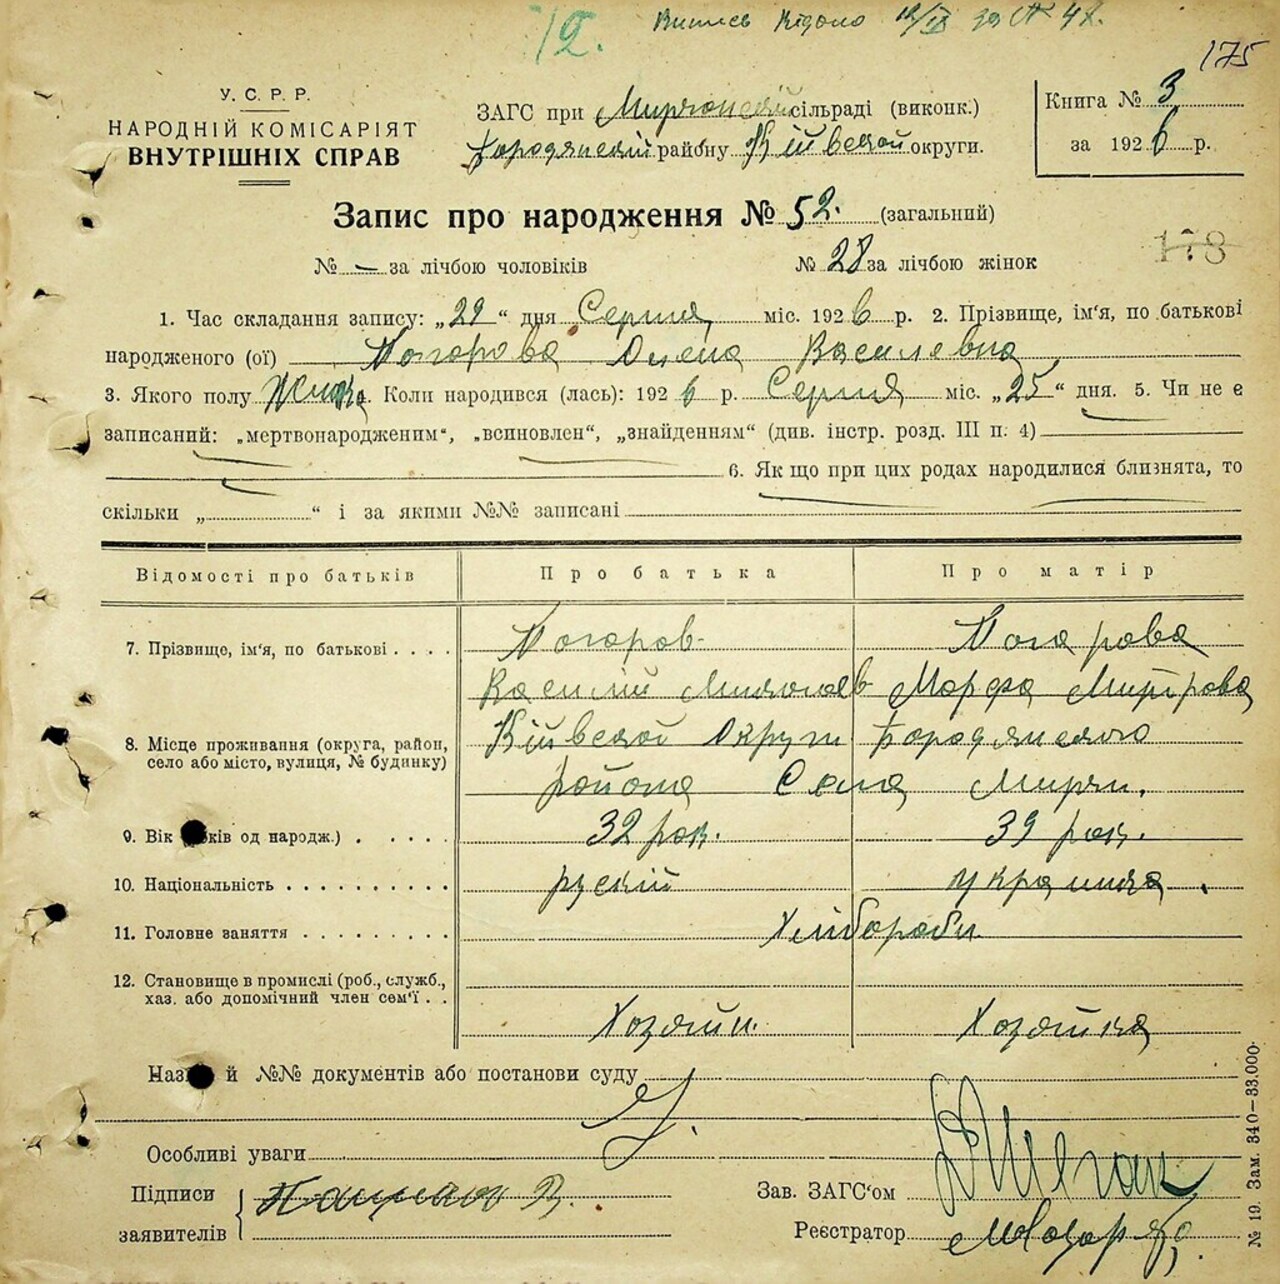 12.
175
У. С. Р. Р.
НАРОДНІЙ КОМІСАРІЯТ
ВНУТРІШНІХ СПРАВ
ЗАГС при Мирчанскій сільраді (виконк.)
Бородянскій району Київской округи.
Книга № 3
за 1926 р.
Запис про народження № 52. (загальний)
178
№ – за лічбою чоловіків № 28 за лічбою жінок
1. Час складання запису: „29“ дня Серпня міс. 1926 р. 2. Прізвище, ім'я, по батькові
народженого (ої) Погорова Олена Василевна
3. Якого полу Жінка. Коли народився (лась): 1926 р. Серпня міс. „25“ дня. 5. Чи не є
записаний: „мертвонародженим“, „всиновлен“, „знайденням“ (див. інстр. розд. III п. 4)
6. Як що при цих родах народилися близнята, то
скільки „ “ і за якими №№ записані
Відомості про батьків Про батька Про матір
7. Прізвище, ім'я, по батькові . . . . Погоров Погорова
Василій Марфа Митрова
8. Місце проживання (округа, район, село або місто, вулиця, № будинку) Київской Округи Бородянского
района Села Мирчи.
9. Вік ків од народж.) . . . . . 32 рок. 39 рок.
10. Національність . . . . . . . . . . рускій украинка.
11. Головне заняття . . . . . . . . . Хлібороби
12. Становище в промислі (роб., служб.,
хаз. або допомічний член сем'ї . . Хозяйн. Хозяйка
Наз й №№ документів або постанови суду
Особливі уваги
Підписи
заявителів
Зав. ЗАГС'ом
Реєстратор
№ 19. Зам. 340—33.000.